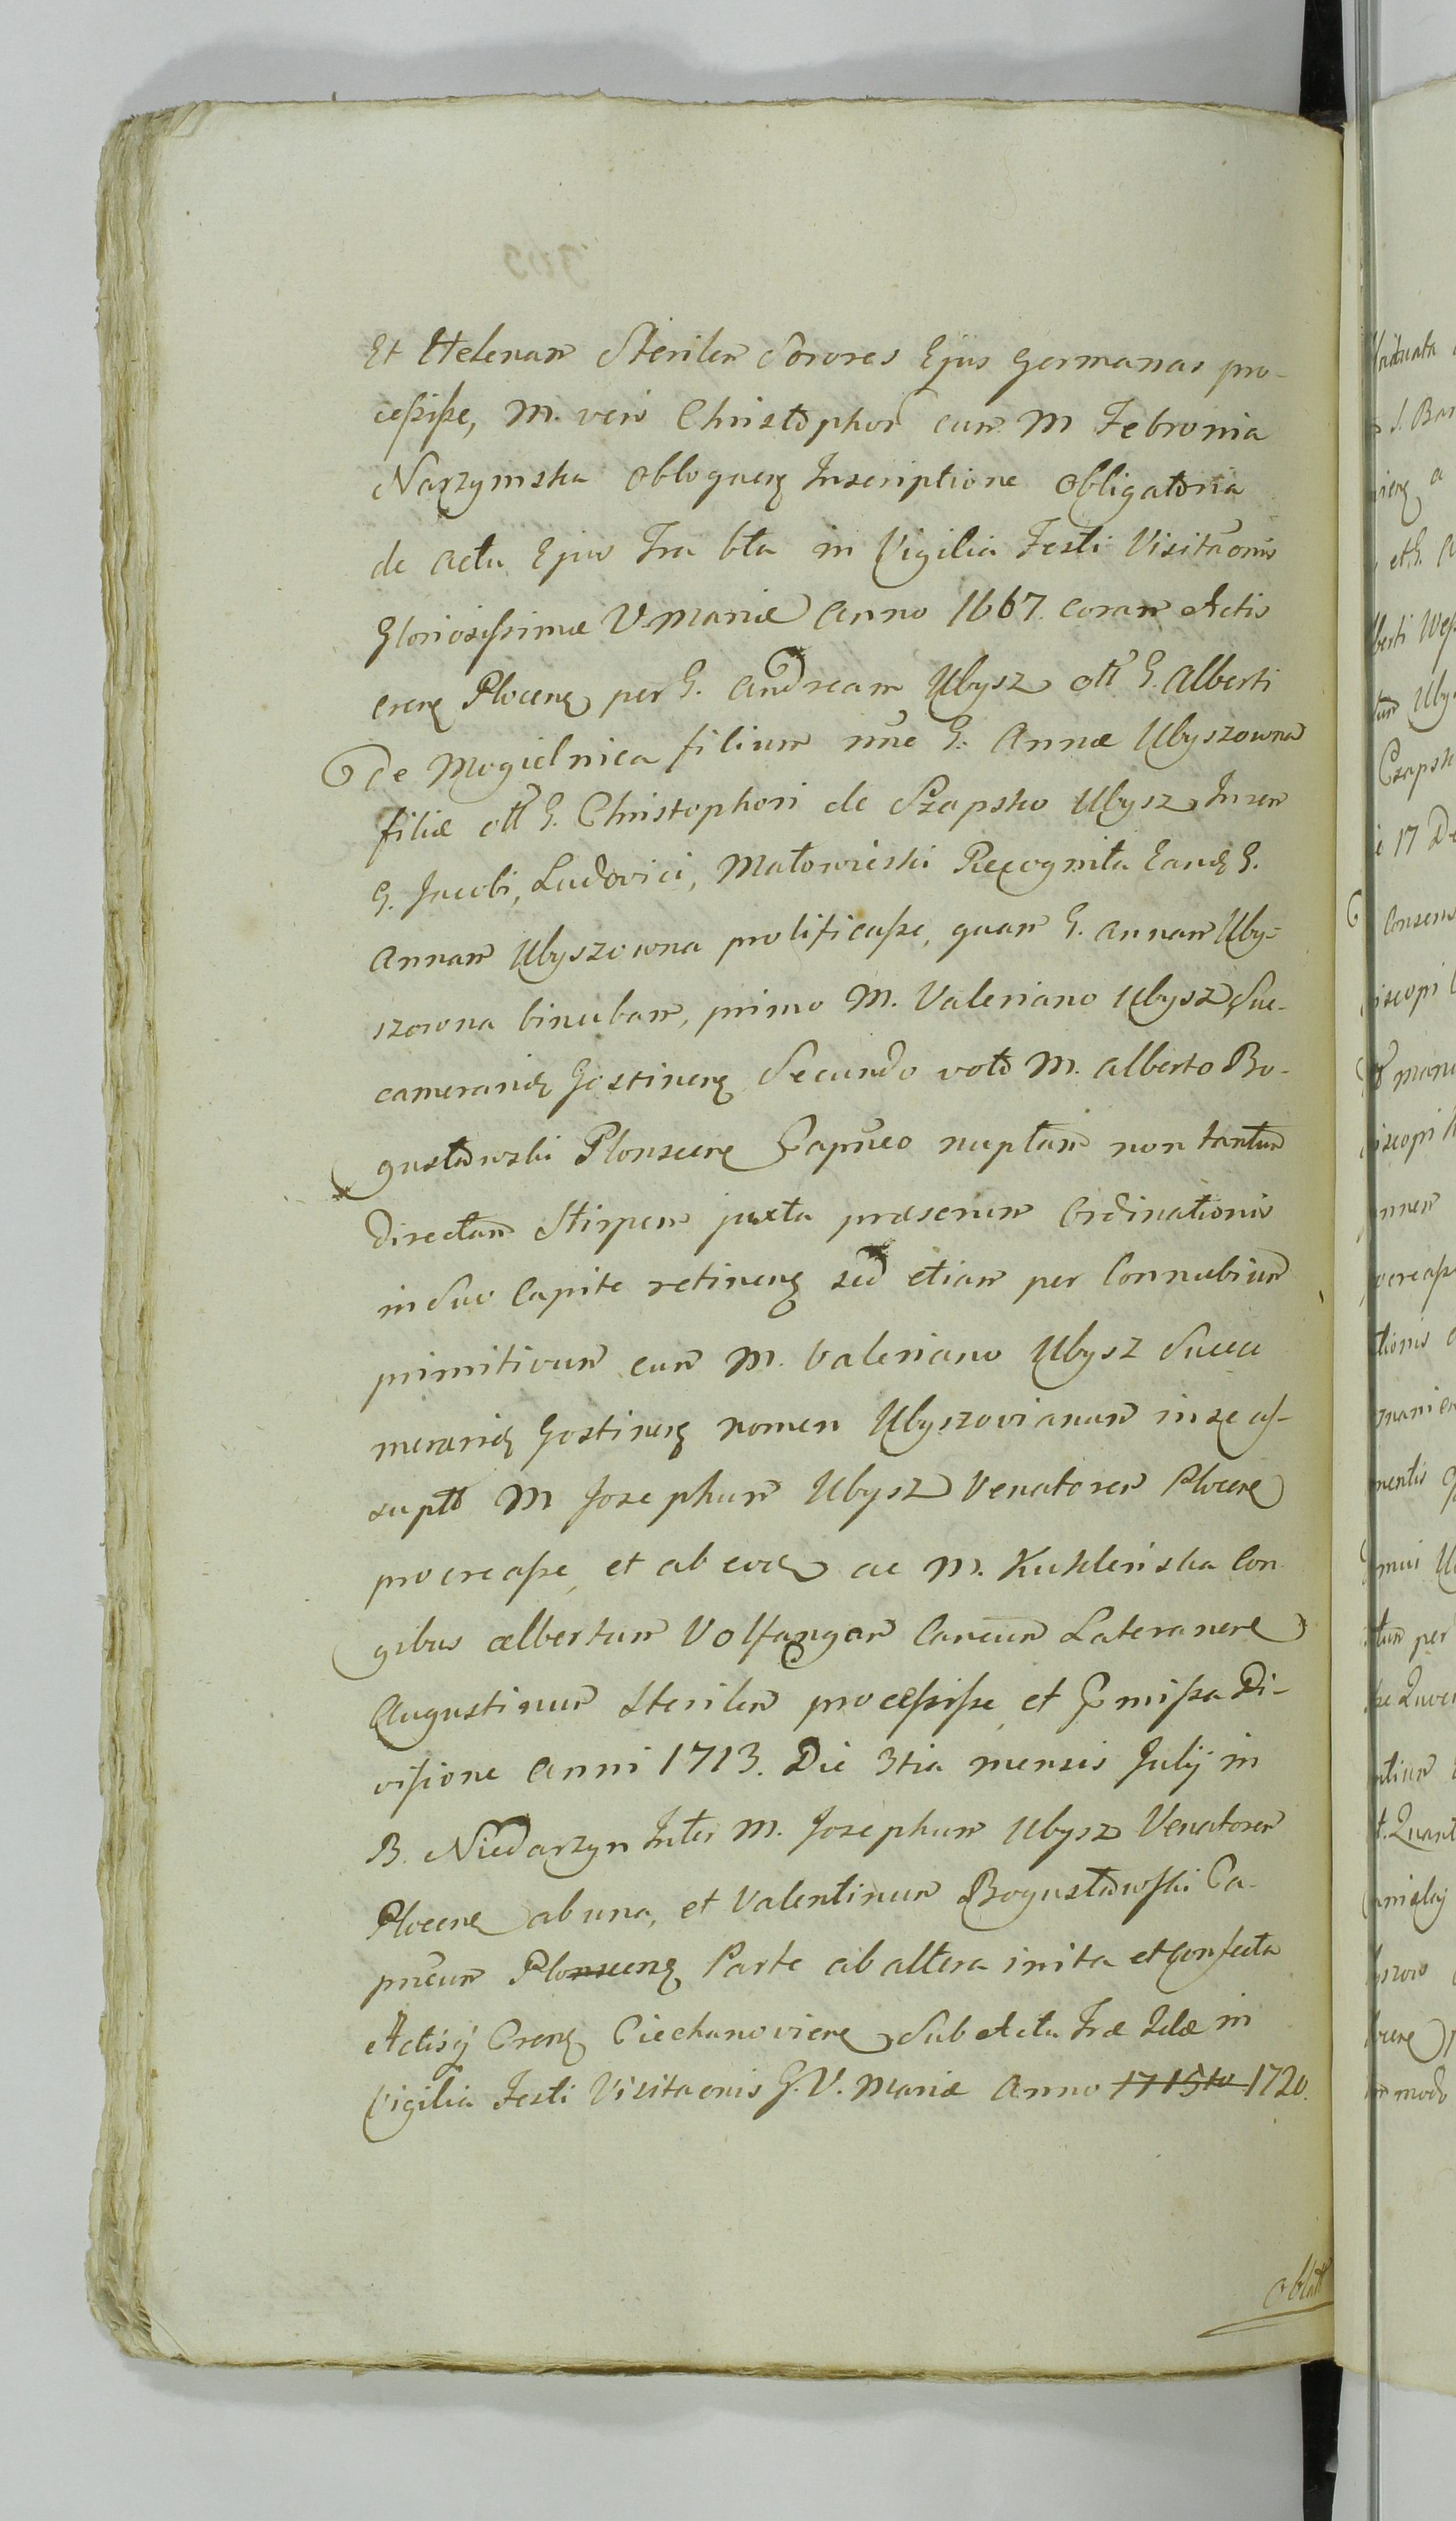 Et Helenam Sterilem Sorores Ejus Germanas pro-
cessisse, M. vero Christophor cum M Febronia
Narzymska obloquen Inscriptione obligatoria
de actu Ejus Fra 6ta in Vigilia Festi Visitaonis
Gloriosissimæ V. Mariæ Anno 1667. coram Actis
Cren Plocen per G. Andream Ubysz olt G. Alberti
de Mogielnica filium nunc G. Annæ Ubyszowna
filiæ olt G. Christophori de Szapsko Ubysz Inser
G. Jacobi, Ludovici, Małowieski Recognita Eand G.
Annam Ubyszowna prolificasse, quam G. Annam Uby-
szowna binubam, primo M. Valeriano Ubysz Suc-
camerarid Gostinen Secundo voto M. Alberto Bo-
gusławski Plonscen Capneo nuptam non tantum
directam Stirpem juxta præserim Ordinationis
in Suo Capite retinen sed etiam per Connubium
primitivum cum M. Valeriano Ubysz Succa
merarid Gostinen nomen Ubyszovianum in se as-
supto M Josephum Ubysz Venatorem Plocen
procreasse, et ab eod ac M. Kuklenska Con
gibus Albertum Volfangom Caneum Lateranen
Augustinum Sterilem processisse, et præmissa Di-
visione Anni 1713. Die 3tia mensis Julij in
B. Niedarzyn Inter M. Josephum Ubysz Venatorem
Plocen ab una, et Valentinum Bogusławski Ca-
pneum Plonscen Parte ab altera inita et Confecta
Actisq Cren Ciechanovien Sub Actu Fræ 2dæ in
Vigilia Festi Visitaonis G. V. Mariæ Anno 1715to 1720.
oblat